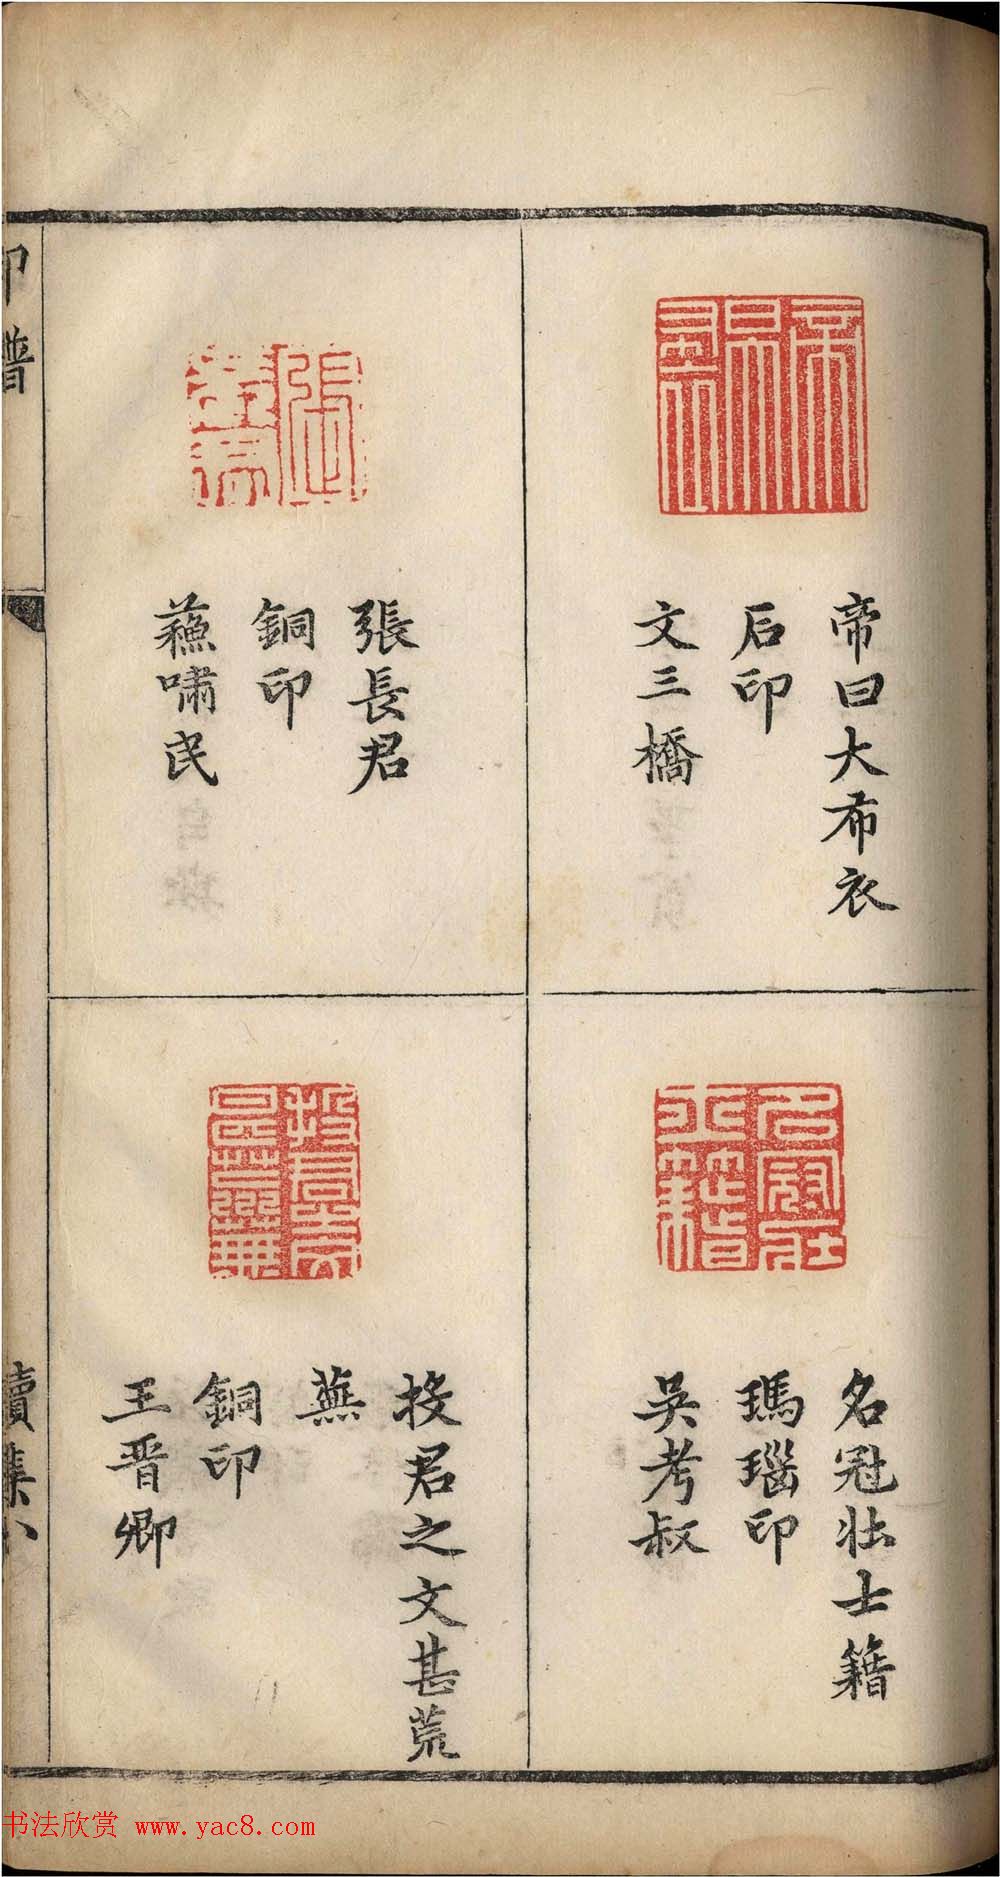 帝曰大布衣
石印
文三橋
張長君
銅印
蘓嘯民
名冠壮士籍
瑪瑙印
吳考叔
投君之文甚荒
蕪
銅印
王晋卿
印譜
續集八
书法欣赏 www.yac8.com